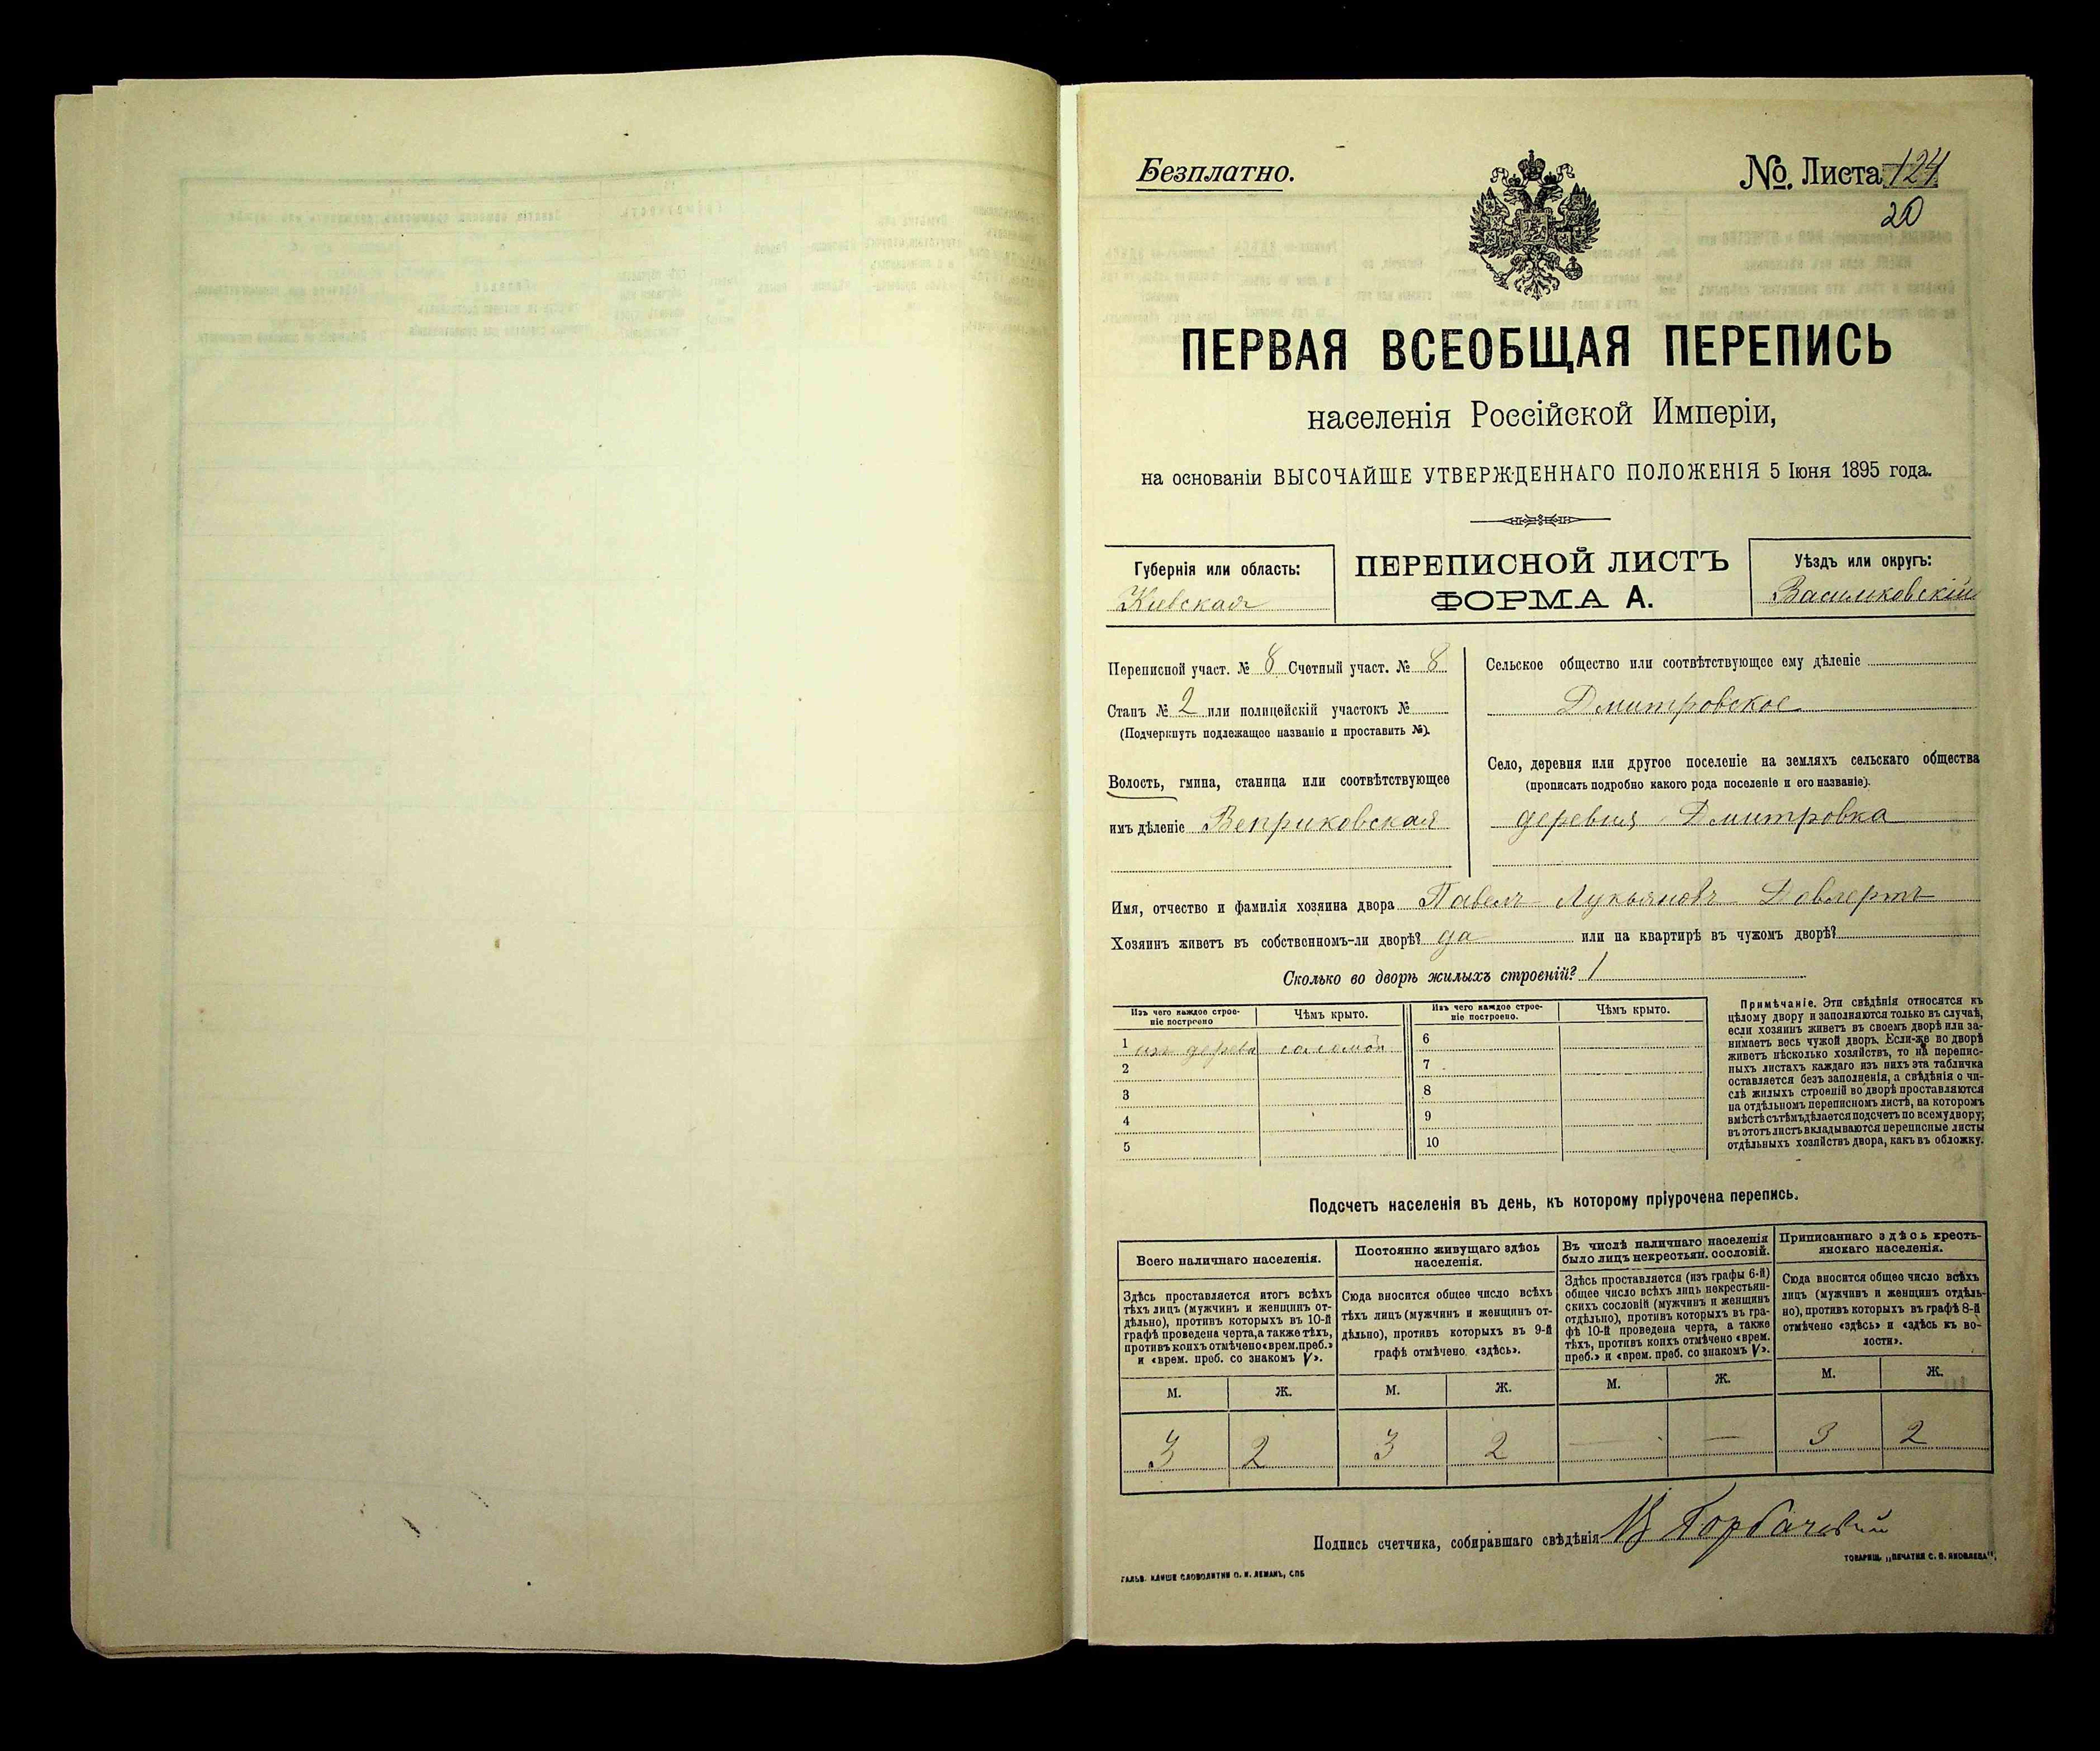 Безплатно.
№ Листа 124
20
ПЕРВАЯ ВСЕОБЩАЯ ПЕРЕПИСЬ
населенія Россійской Имперіи,
на основаніи ВЫСОЧАЙШЕ УТВЕРЖДЕННАГО ПОЛОЖЕНІЯ 5 Іюня 1895 года.
Губернія или область:
Кіевская
ПЕРЕПИСНОЙ ЛИСТЪ
ФОРМА А.
Уѣздъ или округъ:
Васильковскій
Переписной участ. № 8 Счетный участ. № 8
Станъ № 2 или полицейскій участокъ №
(Подчеркнуть подлежащее названіе и проставить №).
Волость, гмина, станица или соотвѣтствующее
имъ дѣленіе Веприковская
Сельское общество или соотвѣтствующее ему дѣленіе
Дмитровское
Село, деревня или другое поселеніе на земляхъ сельскаго общества
(прописать подробно какого рода поселеніе и его названіе).
деревня Дмитровка
Имя, отчество и фамилія хозяина двора Павелъ Лукьяновъ
Хозяинъ живетъ въ собственномъ-ли дворѣ? да или на квартирѣ въ чужомъ дворѣ?
Сколько во дворѣ жилыхъ строеній? 1
Изъ чего каждое строе-
ніе построено
Чѣмъ крыто.
Изъ чего каждое строе-
ніе построено.
Чѣмъ крыто.
1 изъ дерева соломой
2
3
4
5
6
7
8
9
10
Примѣчаніе. Эти свѣдѣнія относятся къ
цѣлому двору и заполняются только въ случаѣ,
если хозяинъ живетъ въ своемъ дворѣ или за-
нимаетъ весь чужой дворъ. Если-же во дворѣ
живетъ нѣсколько хозяйствъ, то на перепис-
ныхъ листахъ каждаго изъ нихъ эта табличка
оставляется безъ заполненія, а свѣдѣнія о чи-
слѣ жилыхъ строеній во дворѣ проставляются
на отдѣльномъ переписномъ листѣ, на которомъ
вмѣстѣ съ тѣмъ дѣлается подсчетъ по всему двору;
въ этотъ листъ вкладываются переписные листы
отдѣльныхъ хозяйствъ двора, какъ въ обложку.
Подсчетъ населенія въ день, къ которому пріурочена перепись.
Всего наличнаго населенія.
Здѣсь проставляется итогъ всѣхъ
тѣхъ лицъ (мужчинъ и женщинъ от-
дѣльно), противъ которыхъ въ 10-й
графѣ проведена черта, а также тѣхъ,
противъ коихъ отмѣчено «врем. преб.»
и «врем. преб. со знакомъ V».
Постоянно живущаго здѣсь
населенія.
Сюда вносится общее число всѣхъ
тѣхъ лицъ (мужчинъ и женщинъ от-
дѣльно), противъ которыхъ въ 9-й
графѣ отмѣчено «здѣсь».
Въ числѣ наличнаго населенія
было лицъ некрестьян. сословій.
Здѣсь проставляется (изъ графы 6-й)
общее число всѣхъ лицъ некрестьян-
скихъ сословій (мужчинъ и женщинъ
отдѣльно), противъ которыхъ въ гра-
фѣ 10-й проведена черта, а также
тѣхъ, противъ коихъ отмѣчено «врем.
преб.» и «врем. преб. со знакомъ V».
Приписаннаго здѣсь кресть-
янскаго населенія.
Сюда вносится общее число всѣхъ
лицъ (мужчинъ и женщинъ отдѣль-
но), противъ которыхъ въ графѣ 8-й
отмѣчено «здѣсь» и «здѣсь къ во-
лости».
М. Ж. М. Ж. М. Ж. М. Ж.
3 2 3 2 — — 3 2
Подпись счетчика, собиравшаго свѣдѣнія Горбачевскій
ГАЛЬВ. КЛИШЕ СЛОВОЛИТНИ О. И. ЛЕМАНЪ, СПБ
ТОВАРИЩ. „ПЕЧАТНЯ С. П. ЯКОВЛЕВА“,